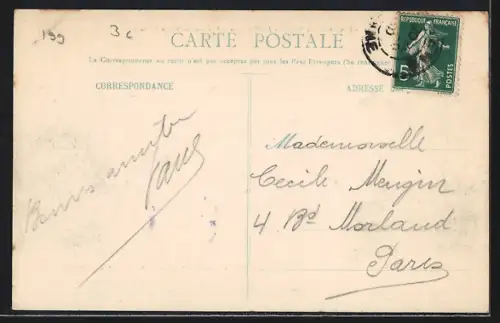 199
3c
CARTE POSTALE
La Correspondance au recto n'est pas acceptée par tous les Pays Etrangers (Se renseigner
CORRESPONDANCE
ADRESSE
REPUBLIQUE FRANÇAISE
5
POSTES
Bonnes amitiés
Paul
Mademoiselle
Cecile Mengin
4 Bd Morland
Paris